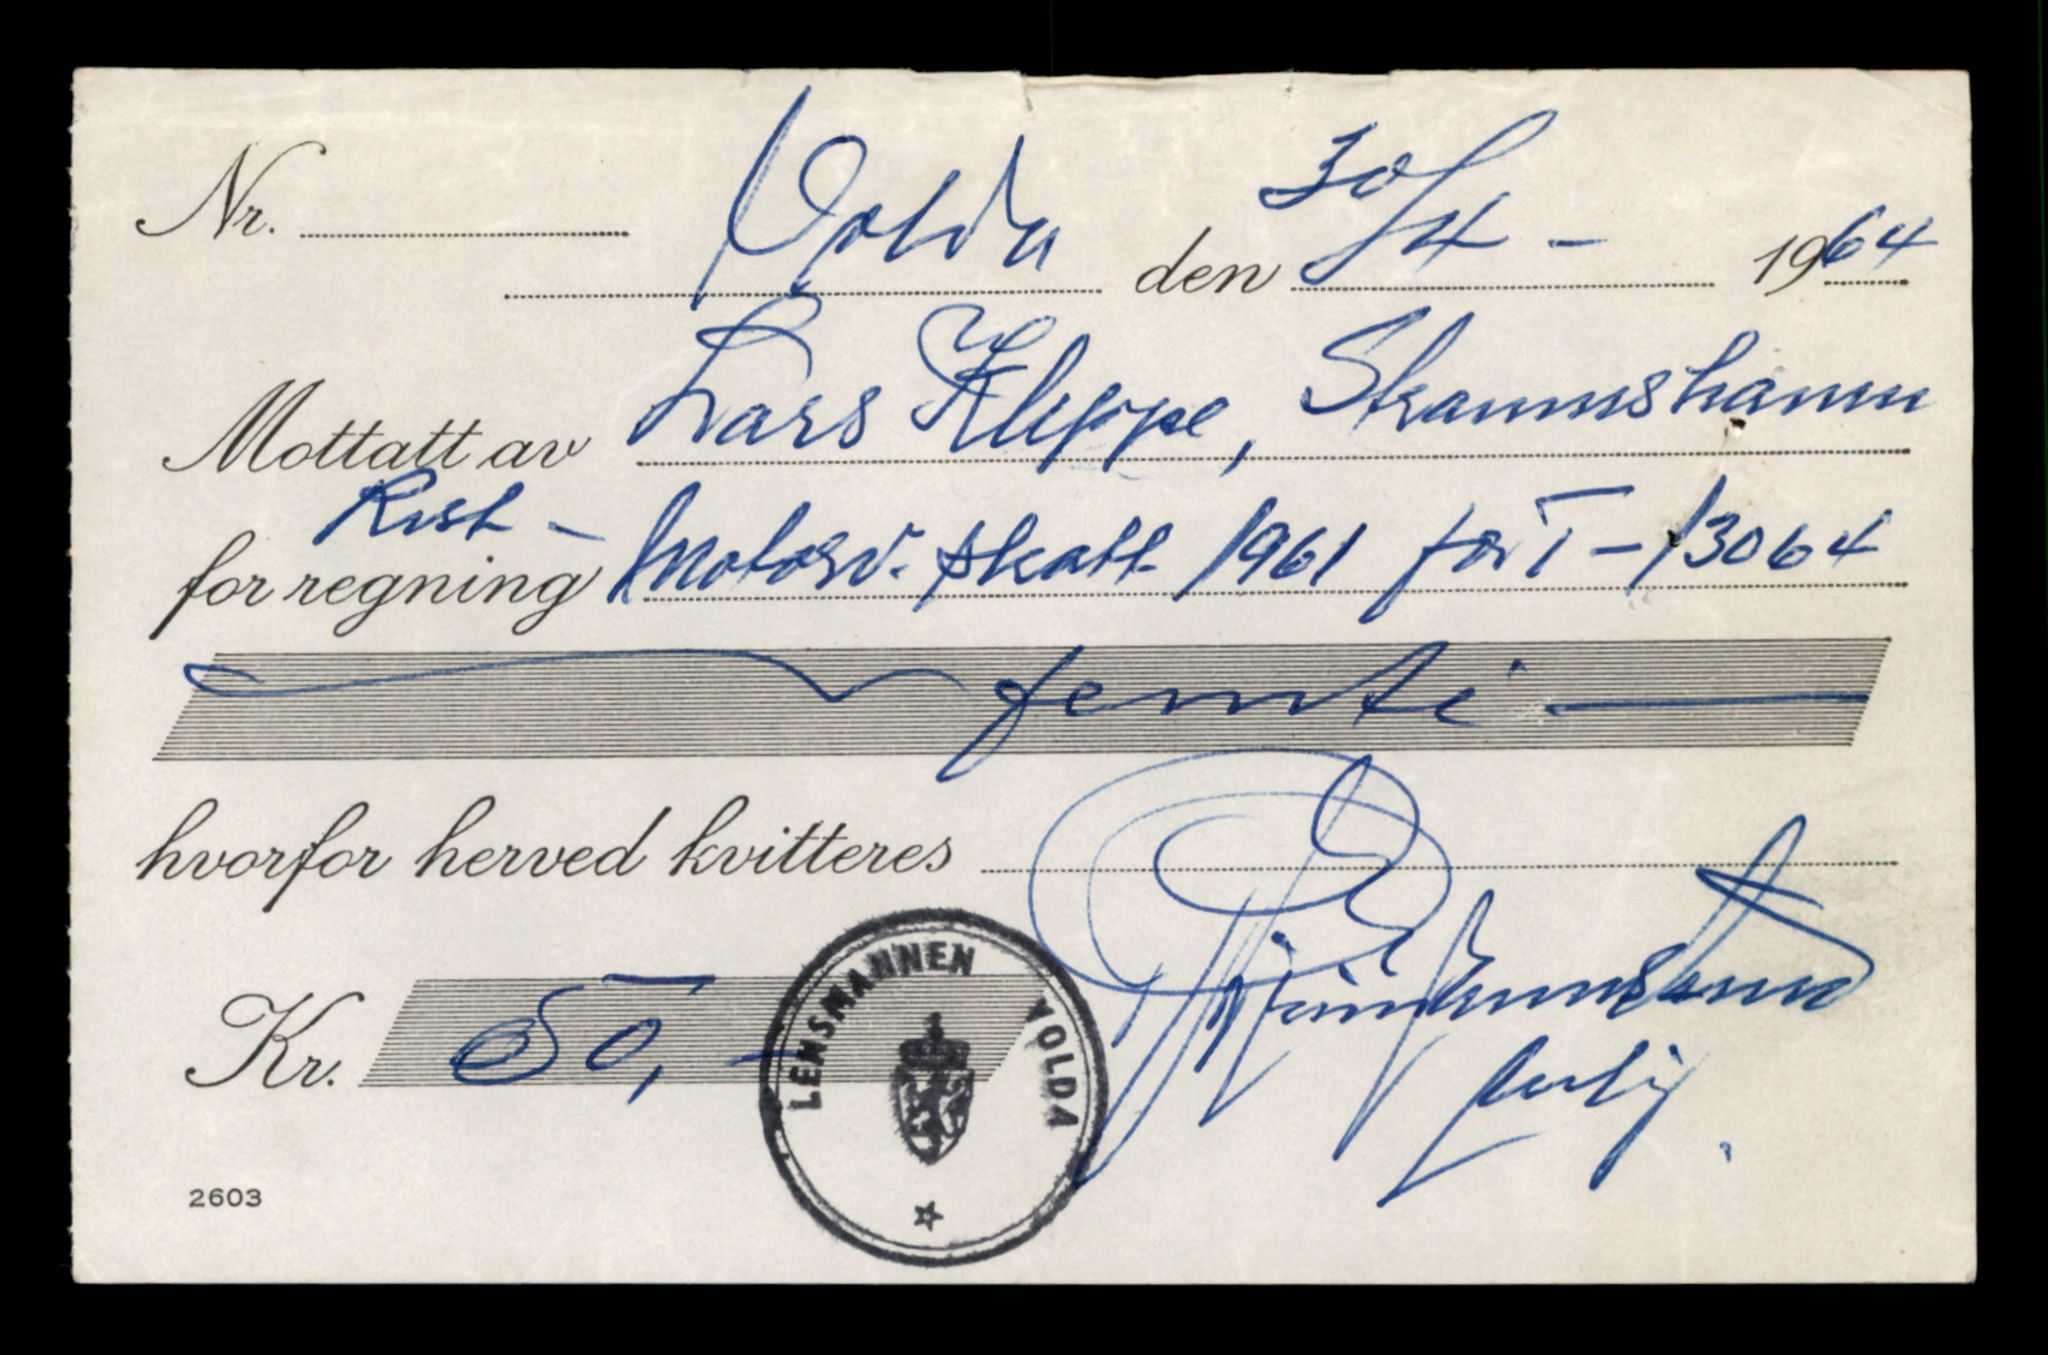 Nr.
Volda den 30/4 - 1964
Mottatt av Lars Kleppe,
Rest -
for regning Motorv. skatt 1961 for T - 13064
femti
hvorfor herved kvitteres
Kr. 50, -
LENSMANNEN VOLDA
2603